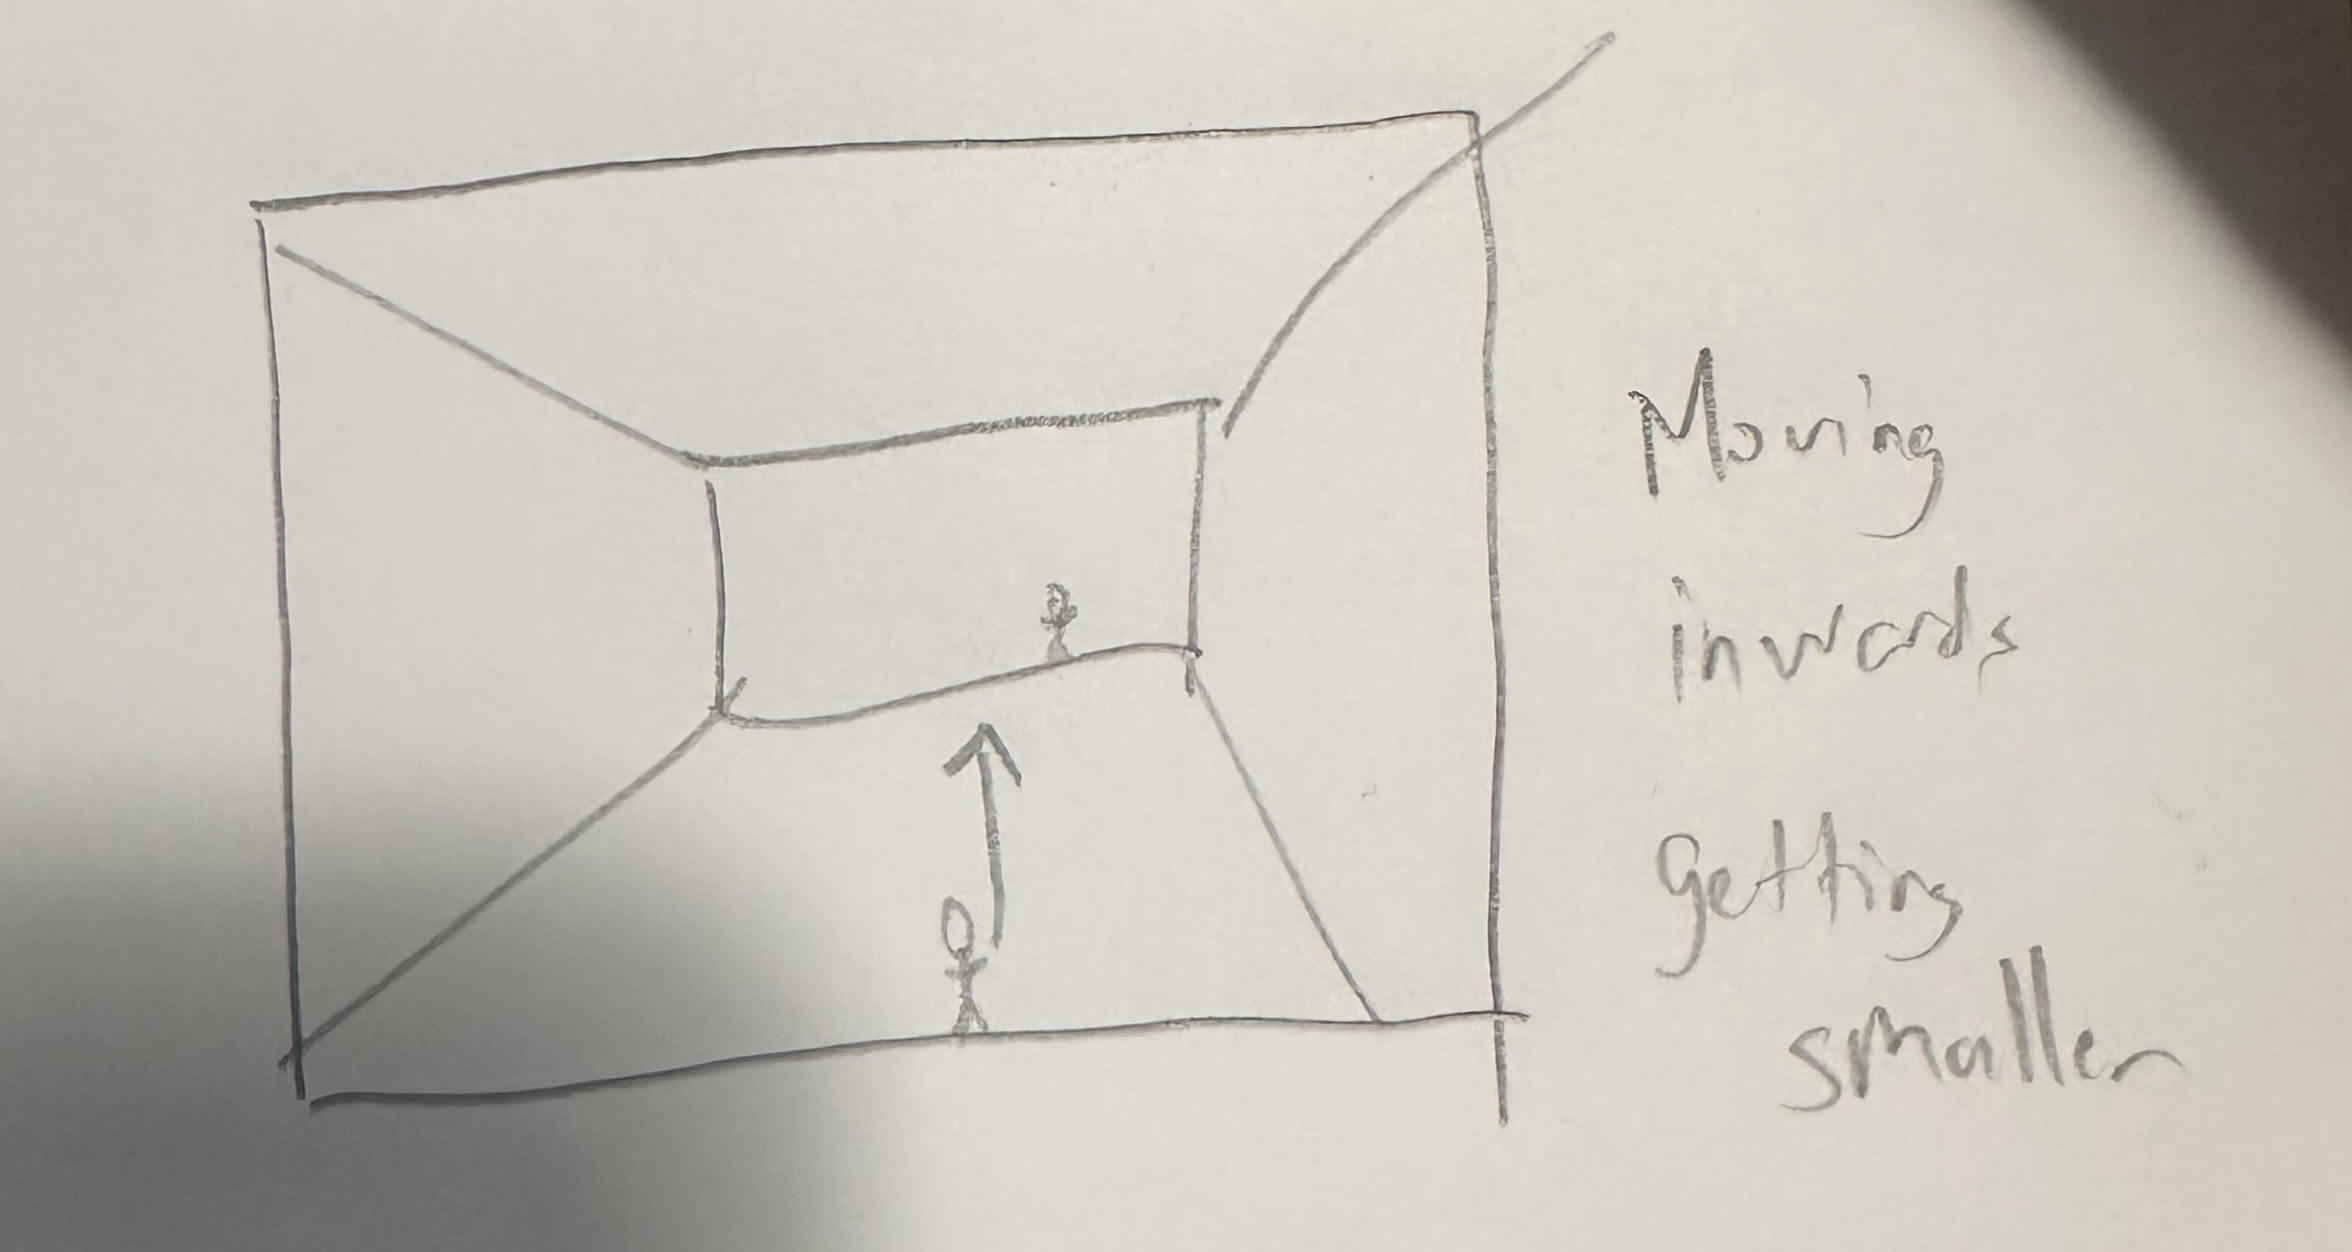 Moving
inwards
getting
smaller